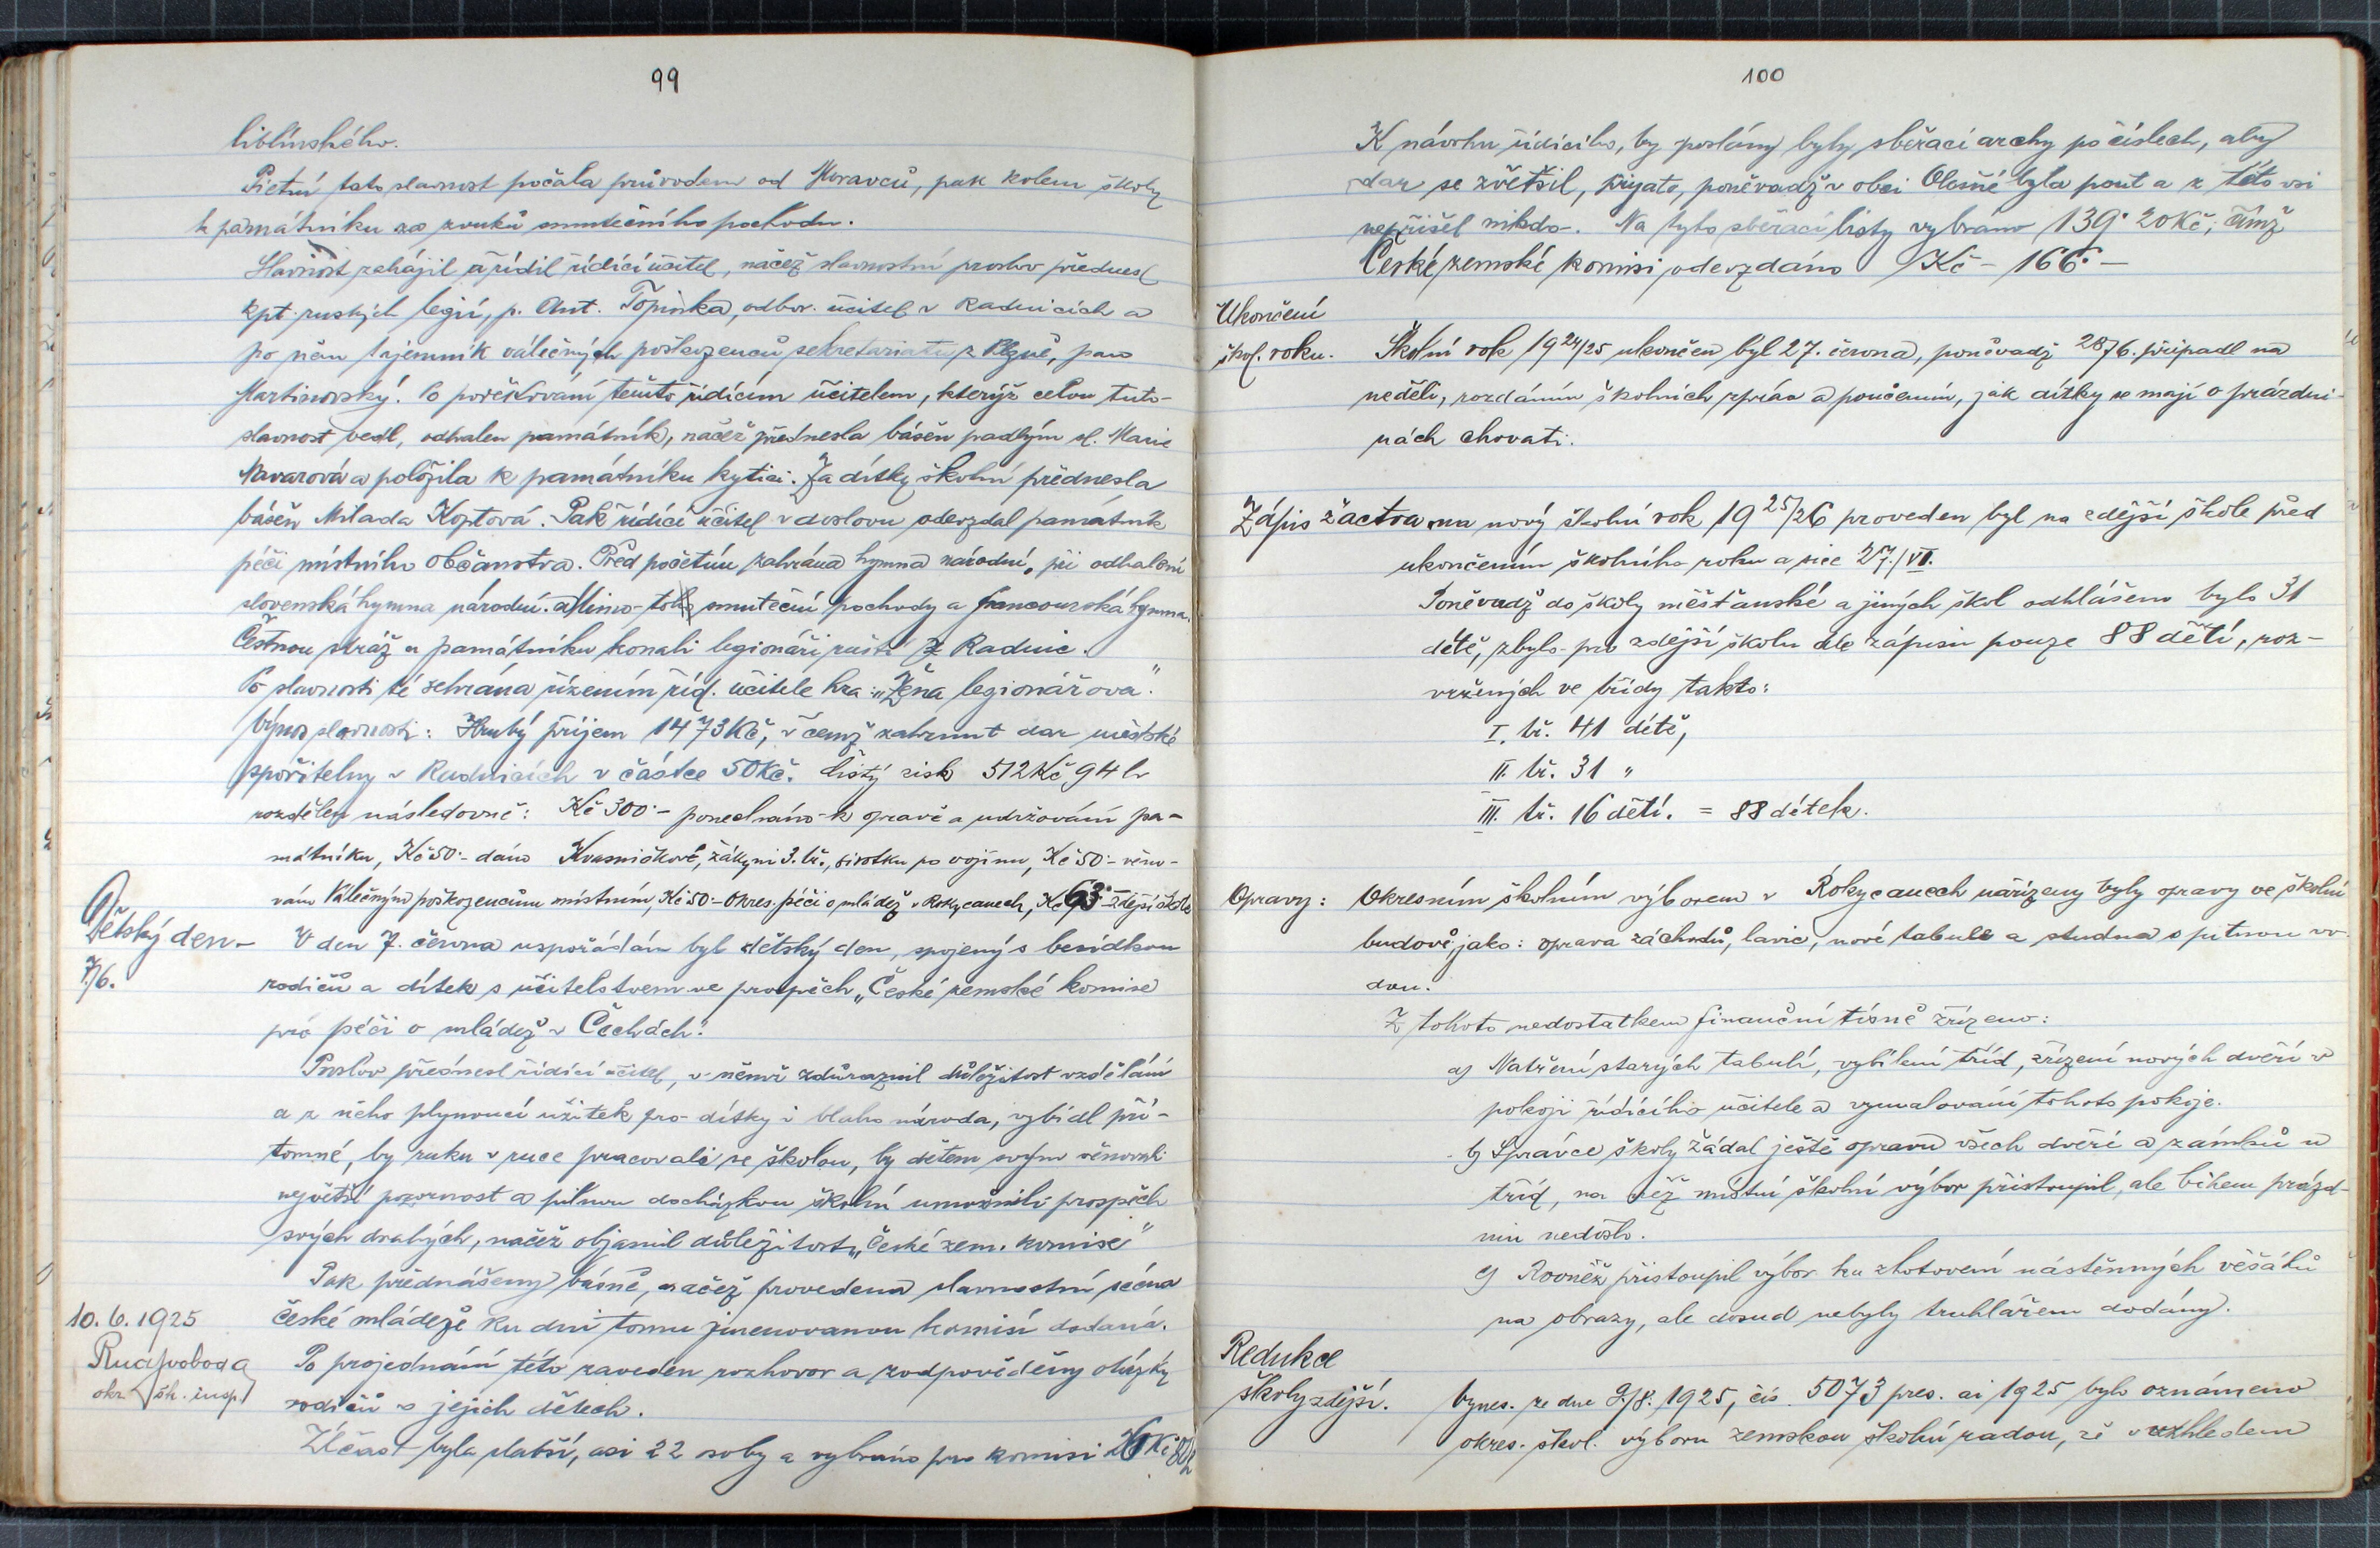 99
liblínského.
Pietní tato slavnost počala průvodem od Moravců, pak kolem školy
k památníku za zvuků smutečního pochodu.
Slavnost zahájil a řídil řídící učitel, načež slavnostní proslov přednesl
kpt. ruských legií, p. Ant. Topinka, odbor. učitel v Radnicích a
po něm tajemník válečných poškozenců sekretariatu z Plzně, pan
Martinovský. Po poděkování těmto řídícím učitelem, kterýž celou tuto
slavnost vedl, odhalen památník, načež přednesla báseň padlým sl. Marie
a položila k památníku kytici. Za dítky školní přednesla
báseň Milada Koptová. Pak řídící učitel v doslovu odevzdal památník
péči místního občanstva. Před početím zahrána hymna národní, při odhalení
slovenská hymna národní. a Mimo to smuteční pochody a francouzská hymna.
Čestnou stráž u památníku konali legionáři ruští z Radnic.
Po slavnosti té sehrána řízením říd. učitele hra: „Žena legionářova".
Výnos slavnosti: Hrubý příjem 1473 Kč, v čemž zahrnut dar městské
spořitelny v Radnicích v částce 50 Kč. Čistý zisk 512 Kč 94 h
rozdělen následovně: Kč 300·- ponecháno k opravě a udržování pa-
mátníku, Kč 50·- dáno Kvasničkové, žákyni 3. tř., sirotku po vojínu, Kč 50·- věno-
váno Válečným poškozencům místním, Kč 50·- Okres. péči o mládež v Rokycanech, Kč 63·- zdejší škole
Dětský den
7/6.
V den 7. června uspořádán byl dětský den, spojený s besídkou
rodičů a dítek s učitelstvem ve prospěch „České zemské komise
pro péči o mládež v Čechách".
Proslov přednesl řídící učitel, v němž zdůraznil důležitost vzdělání
a z něho plynoucí užitek pro dítky i blaho národa, vybídl pří-
tomné, by ruku v ruce pracovali se školou, by dětem svým věnovali
největší pozornost a pilnou docházkou školní umožnili prospěch
svých drahých, načež objasnil důležitost „České zem. komise"
Pak přednášeny básně, načež provedena slavnostní scéna
české mládeže ku dni tomu jmenovanou komisí dodaná.
10. 6. 1925
Rud. Svoboda
okr. šk. insp.
Po projednání této zaveden rozhovor a zodpověděny otázky
rodičů o jejich dětech.
Účast byla slabší, asi 22 osoby a vybráno pro komisi 26 Kč 80 h
100
K návrhu řídícího, by poslány byly sběrací archy po číslech, aby
dar se zvětšil, přijato, poněvadž v obci Olešné byla pout a z této vsi
nepřišel nikdo. Na tyto sběrací listy vybráno 139·20 Kč, čímž
České zemské komisi odevzdáno Kč - 166·-
Ukončení
škol. roku.
Školní rok 1924/25 ukončen byl 27. června, poněvadž 28/6. připadl na
neděli, rozdáním školních zpráv a poučením, jak dítky se mají o prázdni-
nách chovati.
Zápis žactva na nový školní rok 1925/26 proveden byl na zdější škole před
ukončením školního roku a sice 27./VI.
Poněvadž do školy měšťanské a jiných škol odhlášeno bylo 31
dítě, zbylo pro zdější školu dle zápisu pouze 88 dětí, roz-
vržených ve třídy takto:
I. tř. 41 dítě,
II. tř. 31 "
III. tř. 16 dětí. = 88 dítek.
Opravy:
Okresním školním výborem v Rokycanech nařízeny byly opravy ve školní
budově, jako: oprava záchodů, lavic, nové tabule a studna s pitnou vo-
dou.
Z tohoto nedostatkem finanční tísně zřízeno:
a) Natření starých tabulí, vybílení tříd, zřízení nových dveří v
pokoji řídícího učitele a vymalování tohoto pokoje.
b) Správce školy žádal ještě opravu všech dveří a zámků u
tříd, na něž místní školní výbor přistoupil, ale během prázd-
nin nedošlo.
c) Rovněž přistoupil výbor ku zhotovení nástěnných věšáků
na obrazy, ale dosud nebyly truhlářem dodány.
Redukce
školy zdejší.
Vynes. ze dne 9./8. 1925, čís. 5073 pres. ai 1925 bylo oznámeno
okres. škol. výboru zemskou školní radou, že vzhledem